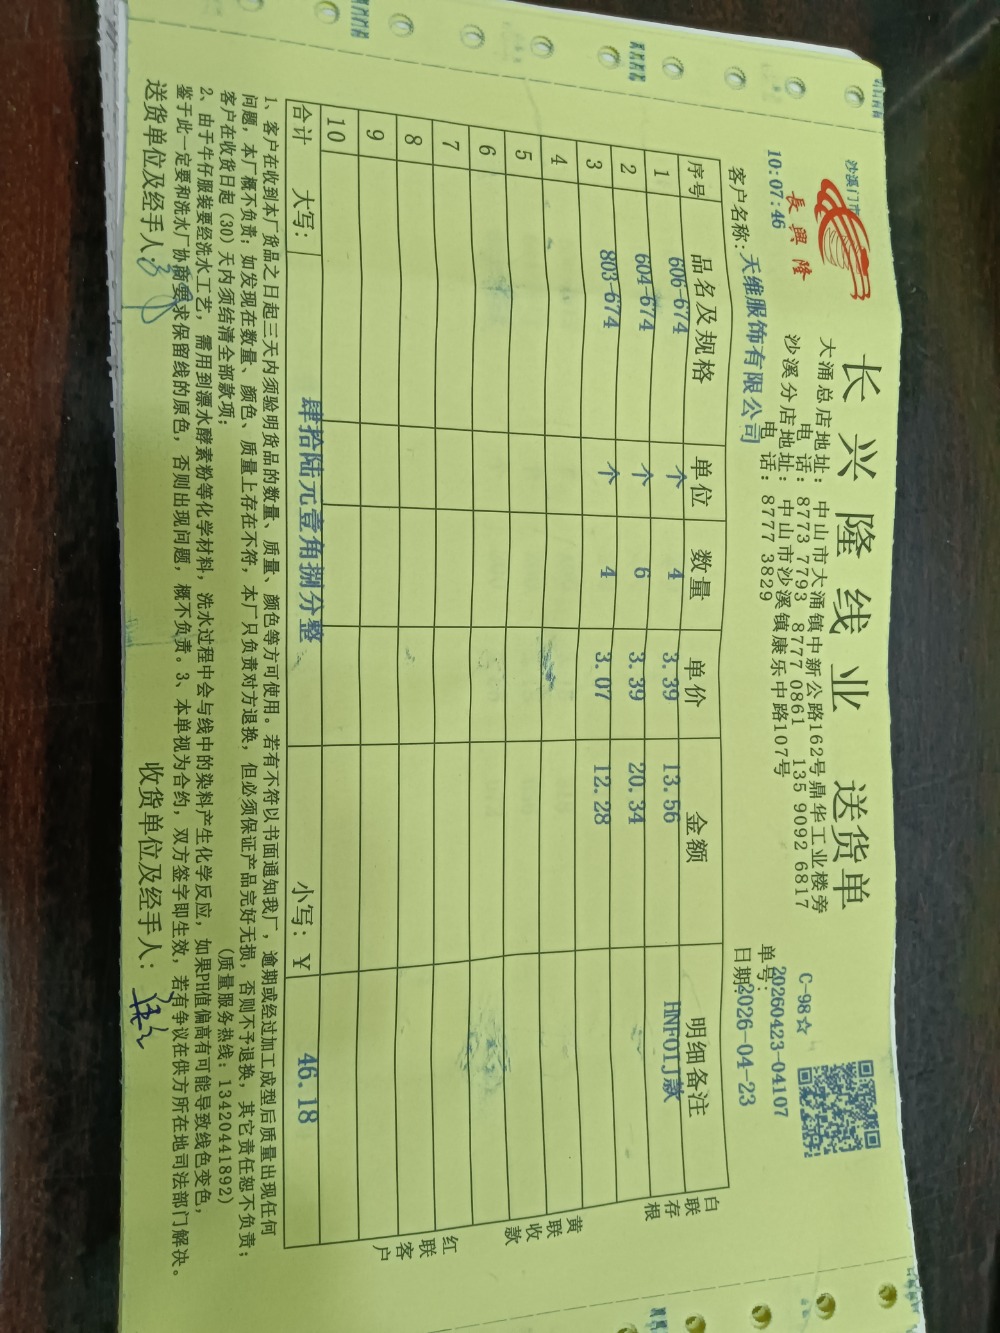 沙溪门市
長興隆
长兴隆线业 送货单
大涌总店地址：中山市大涌镇中新公路162号鼎华工业楼旁
电 话：8773 7793 8777 0861 135 9092 6817
沙溪分店地址：中山市沙溪镇康乐中路107号
电 话：8777 3829
C-98☆
单号：20260423-04107
日期：2026-04-23
10:07:46
客户名称：天维服饰有限公司
序号 品名及规格 单位 数量 单价 金额 明细备注
1 606-674 个 4 3.39 13.56 HNF01J款
2 604-674 个 6 3.39 20.34
3 803-674 个 4 3.07 12.28
4
5
6
7
8
9
10
合计 大写： 肆拾陆元壹角捌分整 小写：￥ 46.18
白联存根
黄联收款
红联客户
1、客户在收到本厂货品之日起三天内须验明货品的数量、质量、颜色等方可使用。若有不符以书面通知我厂，逾期或经过加工成型后质量出现任何
问题，本厂概不负责；如发现在数量、颜色、质量上存在不符，本厂只负责对方退换，但必须保证产品完好无损，否则不予退换，其它责任恕不负责；
客户在收货日起（30）天内须结清全部款项； （质量服务热线：13420441892）
2、由于牛仔服装要经洗水工艺，需用到漂水酵素粉等化学材料，洗水过程中会与线中的染料产生化学反应，如果PH值偏高有可能导致线色变色，
鉴于此一定要和洗水厂协商要求保留线的原色，否则出现问题，概不负责。3、本单视为合约，双方签字即生效，若有争议在供方所在地司法部门解决。
送货单位及经手人： 收货单位及经手人：